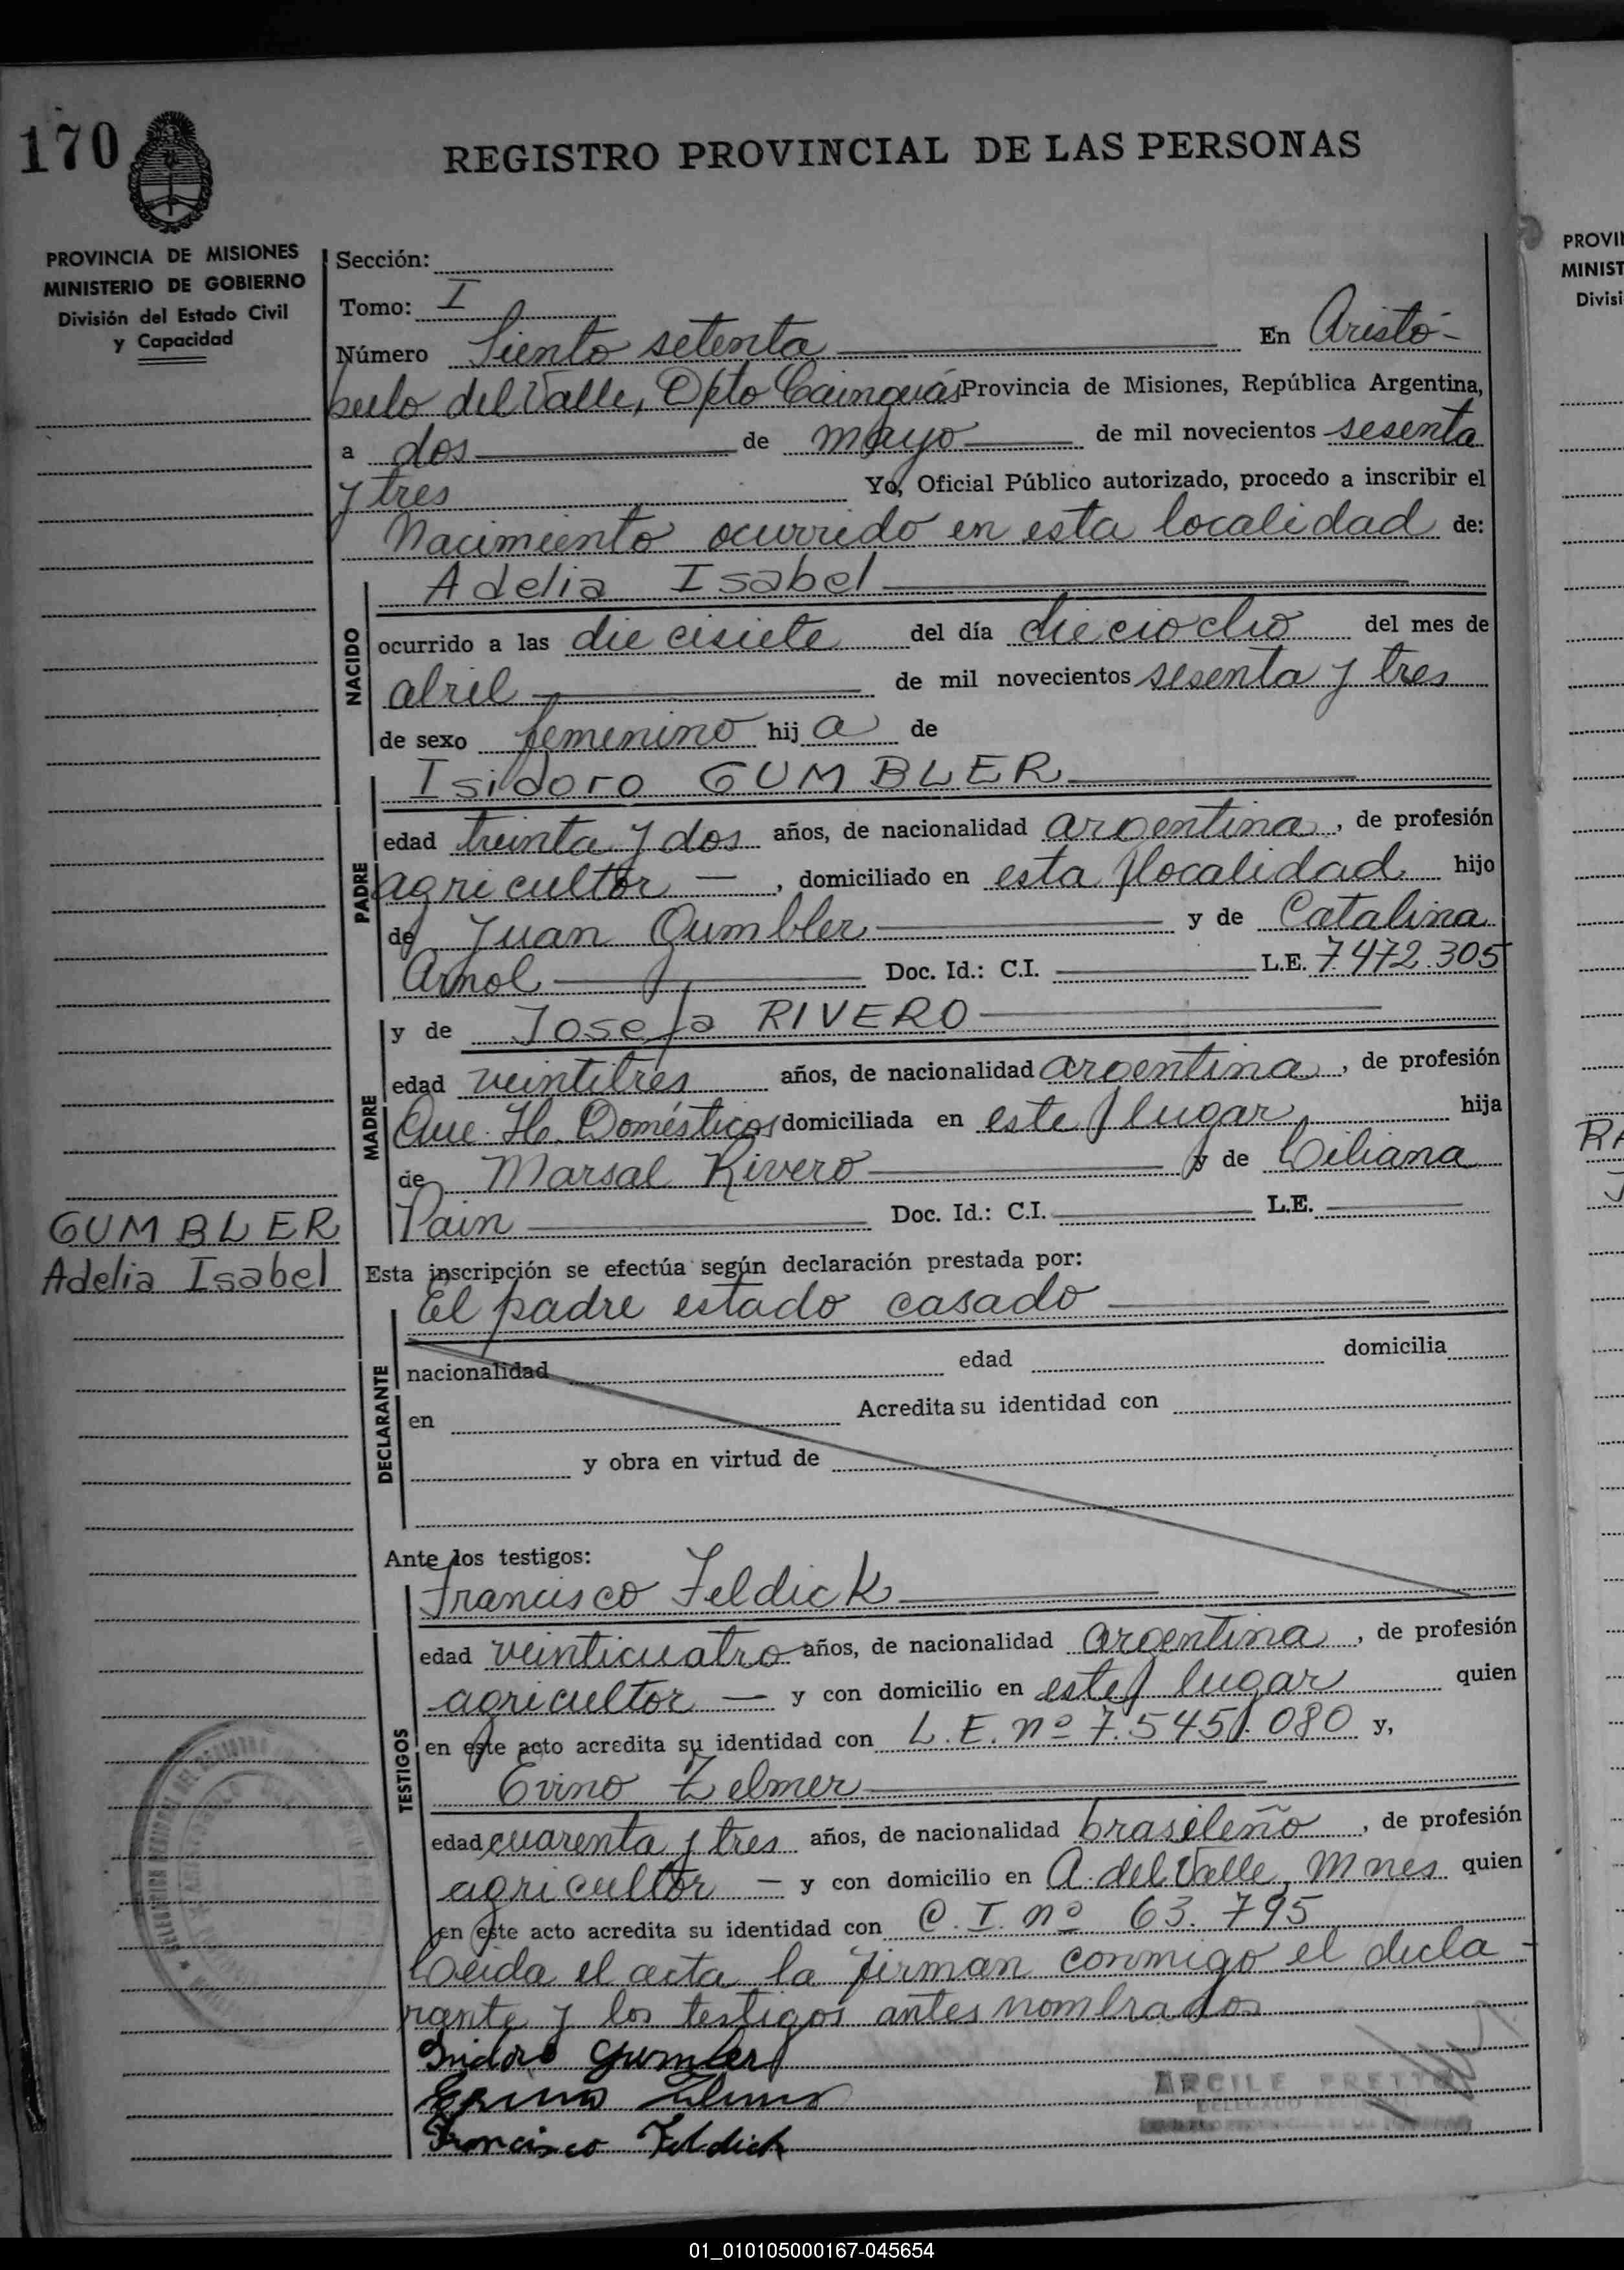 170
REGISTRO PROVINCIAL DE LAS PERSONAS
PROVINCIA DE MISIONES
MINISTERIO DE GOBIERNO
División del Estado Civil
y Capacidad
Sección:
Tomo: I
Número Siento setenta En Aristó-
bulo del Valle, Dpto Cainguás Provincia de Misiones, República Argentina,
a dos de mayo de mil novecientos sesenta
y tres Yo, Oficial Público autorizado, procedo a inscribir el
Nacimiento ocurrido en esta localidad de:
Adelia Isabel
NACIDO
ocurrido a las diecisiete del día dieciocho del mes de
abril de mil novecientos sesenta y tres
de sexo femenino hij a de
Isidoro GUMBLER
PADRE
edad treinta y dos años, de nacionalidad argentina, de profesión
agricultor — , domiciliado en esta localidad hijo
de Juan Gumbler y de Catalina
Arnol Doc. Id.: C.I. L.E. 7.472.305
y de Josefa RIVERO
MADRE
edad veintitrés años, de nacionalidad argentina, de profesión
Que. H. Domésticos domiciliada en este lugar hija
de Marsal Rivero y de Liliana
Pain Doc. Id.: C.I. L.E.
GUMBLER
Adelia Isabel
Esta inscripción se efectúa según declaración prestada por:
El padre estado casado
DECLARANTE
nacionalidad edad domicilia
en Acredita su identidad con
y obra en virtud de
Ante los testigos:
Francisco Feldick
TESTIGOS
edad veinticuatro años, de nacionalidad argentina, de profesión
agricultor — y con domicilio en este lugar quien
en este acto acredita su identidad con L.E. nº 7.545.080 y,
Evino Zelmer
edad cuarenta y tres años, de nacionalidad brasileño, de profesión
agricultor — y con domicilio en A. del Valle, Mnes quien
en este acto acredita su identidad con C.I. nº 63.795
Leida el acta la firman conmigo el decla-
rante y los testigos antes nombrados
Isidoro Gumbler
Evino Zelmer
Francisco Feldick
PROVIN
MINIST
Divisi
RA
J
01_010105000167-045654